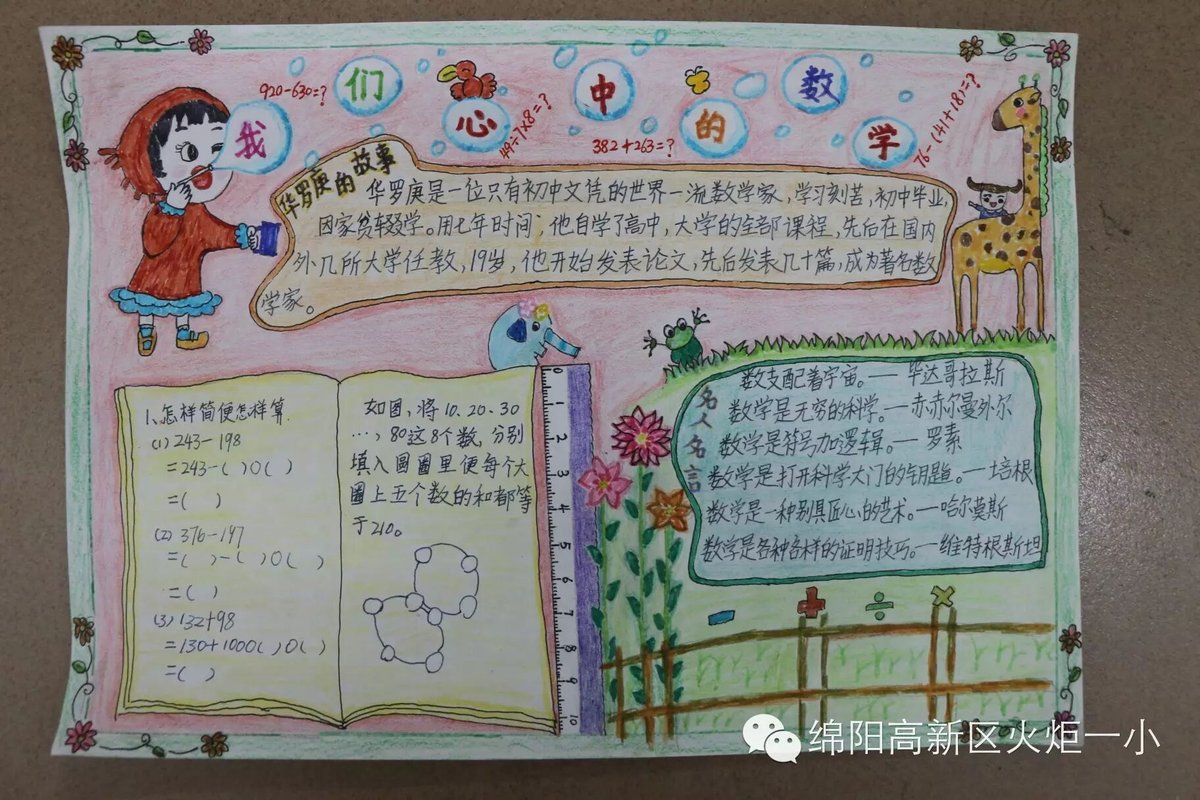 我们心中的数学
920-630=?
49÷7×8=?
382+263=?
76-(41+18)=?
华罗庚的故事
华罗庚是一位只有初中文凭的世界一流数学家，学习刻苦，初中毕业，
因家贫辍学。用七年时间，他自学了高中，大学的全部课程，先后在国内
外几所大学任教，19岁，他开始发表论文，先后发表几十篇，成为著名数
学家。
1、怎样简便怎样算.
(1) 243-198
=243-( )○( )
=( )
(2) 376-197
=( )-( )○( )
=( )
(3) 132+98
=130+100○( )○( )
=( )
如图，将10、20、30
…，80这8个数，分别
填入圆圈里使每个大
圈上五个数的和都等
于210。
0
1
2
3
4
5
6
7
8
9
10
名人名言
数支配着宇宙。—毕达哥拉斯
数学是无穷的科学。—赤赫尔曼外尔
数学是符号加逻辑。—罗素
数学是打开科学大门的钥匙。—培根
数学是一种别具匠心的艺术。—哈尔莫斯
数学是各种各样的证明技巧。—维特根斯坦
- + ÷ ×
绵阳高新区火炬一小